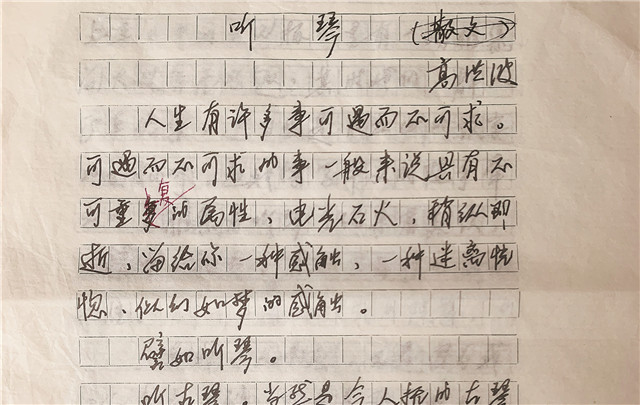 听琴 (散文)
高洪波
人生有许多事可遇而不可求。
可遇而不可求的事一般来说具有不
可重复的属性，电光石火，稍纵即
逝，留给你一种感触，一种迷离恍
惚、似幻如梦的感触。
譬如听琴。
听古琴，当然是令人抚的古琴